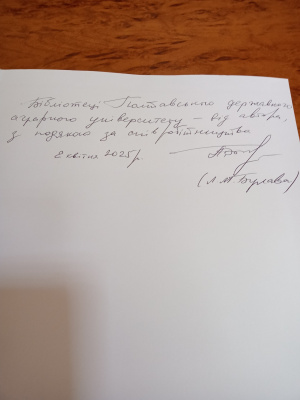 Бібліотеці Полтавського державного
аграрного університету – від автора,
з подякою за співробітництво
2 квітня 2025 р.
(Л. М. Булава)